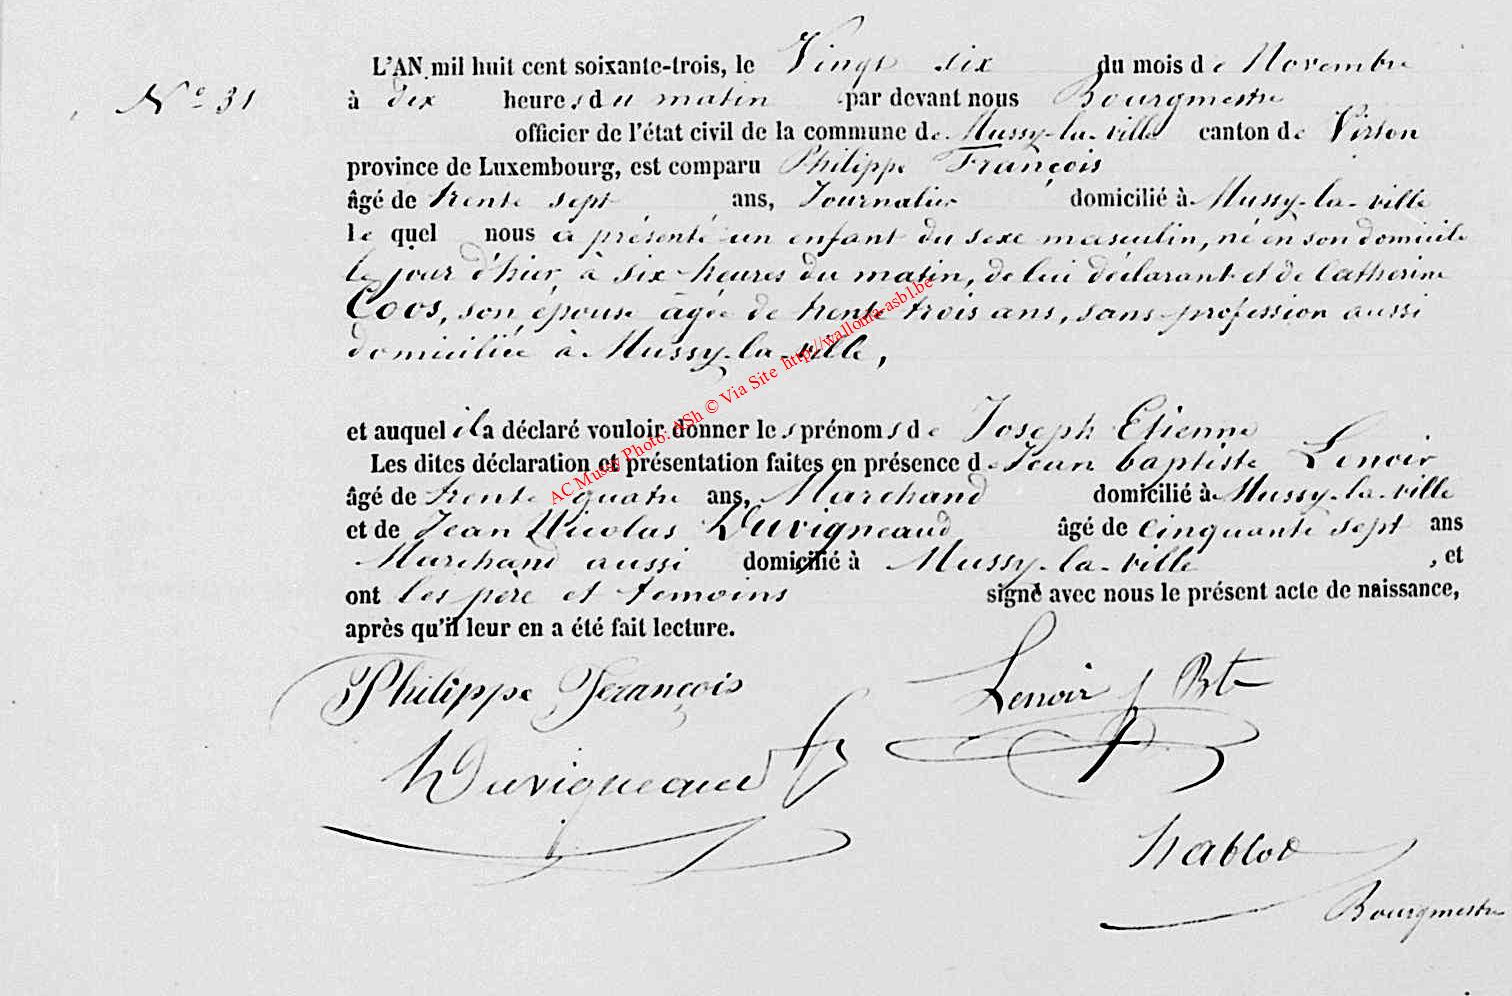 L'AN mil huit cent soixante-trois, le Vingt six du mois de Novembre
N° 31 à dix heures du matin par devant nous Bourgmestre
officier de l'état civil de la commune de Mussy-la-ville canton de Virton
province de Luxembourg, est comparu Philippe François
âgé de trente sept ans, Journalier domicilié à Mussy-la-ville
lequel nous a présenté un enfant du sexe masculin, né en son domicile
le jour d'hier, à six heures du matin, de lui déclarant et de Catherine
Coos, son épouse âgée de trente trois ans, sans profession aussi
domiciliée à Mussy-la-ville,
et auquel il a déclaré vouloir donner les prénoms de Joseph Etienne
Les dites déclaration et présentation faites en présence de Jean baptiste Lenoir
âgé de trente quatre ans, Marchand domicilié à Mussy-la-ville
et de Jean Nicolas Duvigneaud âgé de cinquante sept ans
Marchand aussi domicilié à Mussy-la-ville, et
ont les père et temoins signé avec nous le présent acte de naissance,
après qu'il leur en a été fait lecture.
Philippe François
Lenoir j Bte
Duvigneaud
habloc
Bourgmestre
AC Mussy Photo: ASh © Via Site http://wallonia-asbl.be